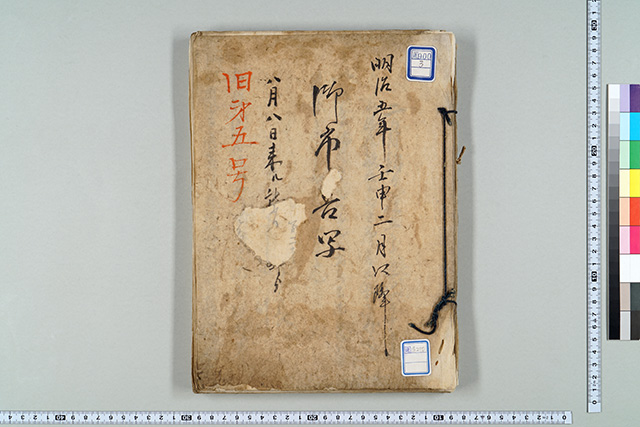 明治五年 壬申二月以降
御布告写
八月八日来ル
旧才五号